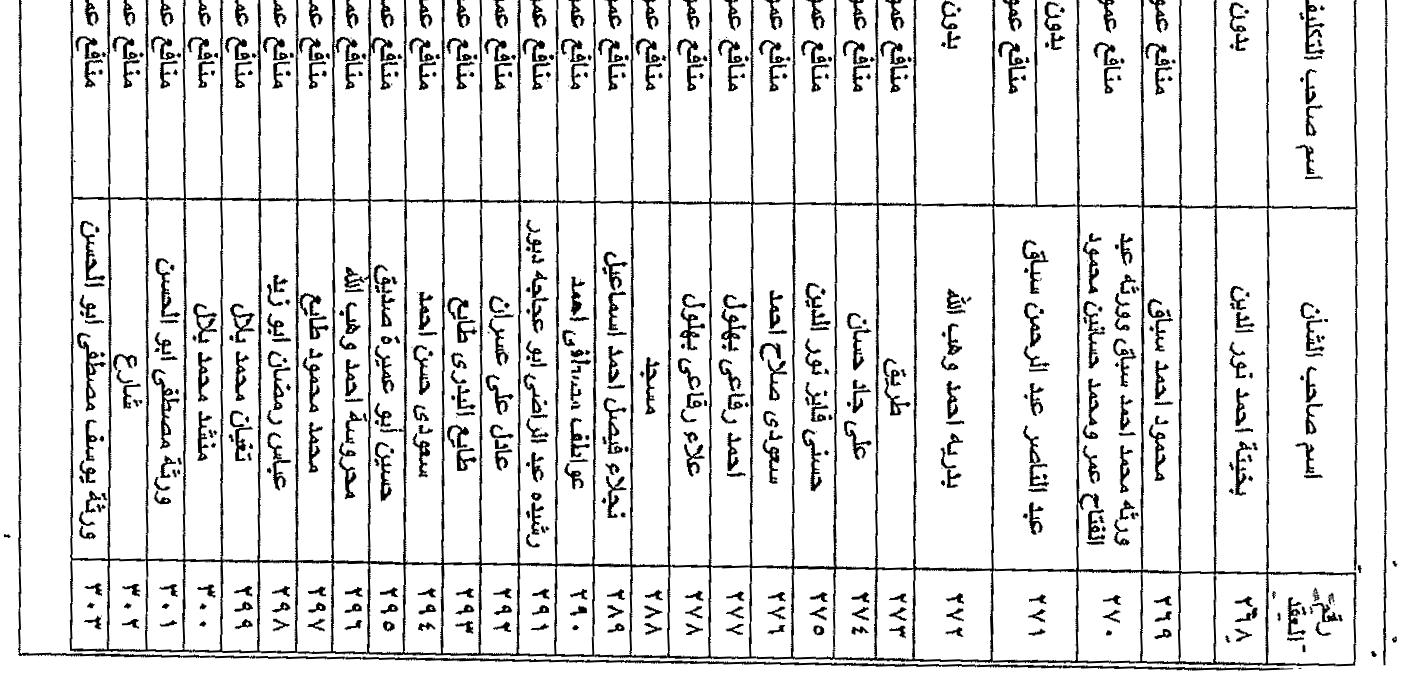 رقم العقد اسم صاحب الشأن اسم صاحب التكليف
٢٦٨ بخيتة احمد نور الدين بدون
٢٦٩ محمود احمد سباق منافع عمو
٢٧٠ ورثه محمد احمد سباق وورثه عبد منافع عمو
الفتاح عمر ومحمد حسانين محمود
٢٧١ عبد الناصر عبد الرحمن سباق بدون
منافع عمو
٢٧٢ بدريه احمد وهب الله بدون
٢٧٣ طريق منافع عمو
٢٧٤ على جاد حسان منافع عمو
٢٧٥ حسنى فايز نور الدين منافع عمو
٢٧٦ سعودى صلاح احمد منافع عمو
٢٧٧ احمد رفاعى بهلول منافع عمو
٢٧٨ علاء رفاعى بهلول منافع عمو
٢٨٨ مسجد منافع عمو
٢٨٩ نجلاء فيصل احمد اسماعيل منافع عمو
٢٩٠ عواطف احمد منافع عمر
٢٩١ رشيده عبد الراضى ابو عجاجه دبور منافع عمر
٢٩٢ عادل على عسران منافع عم
٢٩٣ طايع البدرى طايع منافع عم
٢٩٤ سعودى حسن احمد منافع عم
٢٩٥ حسين أبو عميرة صديق منافع عم
٢٩٦ محروسة احمد وهب الله منافع عم
٢٩٧ محمد محمود طايع منافع عم
٢٩٨ عباس رمضان ابو زيد منافع عم
٢٩٩ تغيان محمد بلال منافع عم
٣٠٠ منشد محمد بلال منافع عم
٣٠١ ورثة مصطفى ابو الحسن منافع عم
٣٠٢ شارع منافع عم
٣٠٣ ورثة يوسف مصطفى ابو الحسن منافع عم